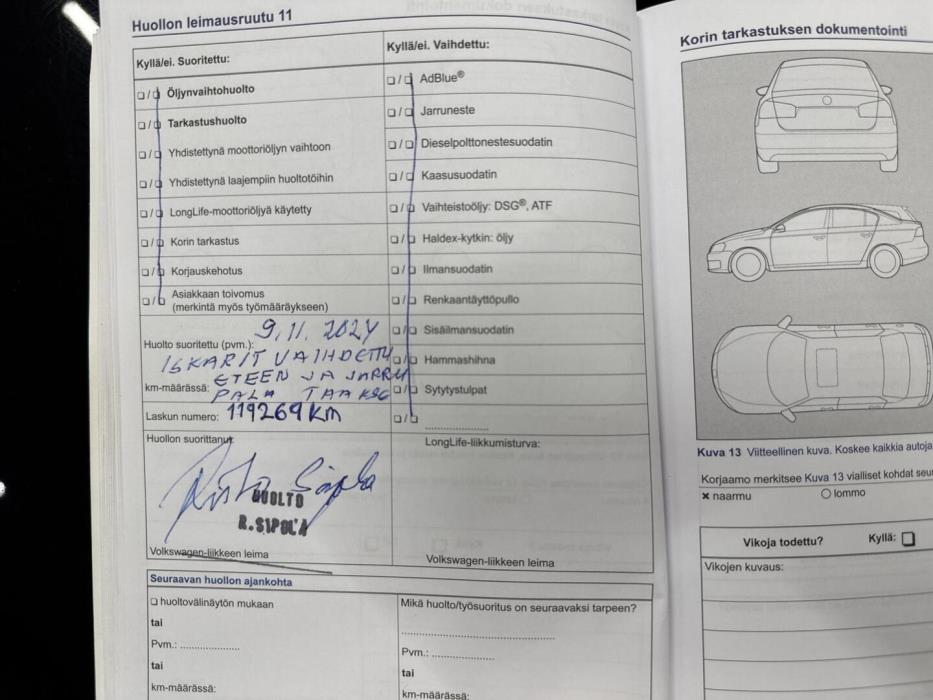 Huollon leimausruutu 11
Kyllä/ei. Suoritettu:
❏ / ❏ Öljynvaihtohuolto
❏ / ❏ Tarkastushuolto
❏ / ❏ Yhdistettynä moottoriöljyn vaihtoon
❏ / ❏ Yhdistettynä laajempiin huoltotöihin
❏ / ❏ LongLife-moottoriöljyä käytetty
❏ / ❏ Korin tarkastus
❏ / ❏ Korjauskehotus
❏ / ❏ Asiakkaan toivomus
(merkintä myös työmääräykseen)
Kyllä/ei. Vaihdettu:
❏ / ❏ AdBlue®
❏ / ❏ Jarruneste
❏ / ❏ Dieselpolttonestesuodatin
❏ / ❏ Kaasusuodatin
❏ / ❏ Vaihteistoöljy: DSG®, ATF
❏ / ❏ Haldex-kytkin: öljy
❏ / ❏ Ilmansuodatin
❏ / ❏ Renkaantäyttöpullo
❏ / ❏ Sisäilmansuodatin
❏ / ❏ Hammashihna
❏ / ❏ Sytytystulpat
❏ / ❏ ....................
9.11.2024
Huolto suoritettu (pvm.):
ISKARIT VAIHDETTU
ETEEN JA JARRU
km-määrässä: PALA TAAKSE
Laskun numero: 119269 KM
Huollon suorittanut:
Risto Sipola
HUOLTO
R. SIPOLA
Volkswagen-liikkeen leima
LongLife-liikkumisturva:
Volkswagen-liikkeen leima
Seuraavan huollon ajankohta
❏ huoltovälinäytön mukaan
tai
Pvm.: ....................
tai
km-määrässä:
Mikä huolto/työsuoritus on seuraavaksi tarpeen?
..................................................
Pvm.: ....................
tai
km-määrässä:
Korin tarkastuksen dokumentointi
Kuva 13 Viitteellinen kuva. Koskee kaikkia autoja
Korjaamo merkitsee Kuva 13 vialliset kohdat
✖ naarmu ○ lommo
Vikoja todettu? Kyllä: ❏
Vikojen kuvaus: